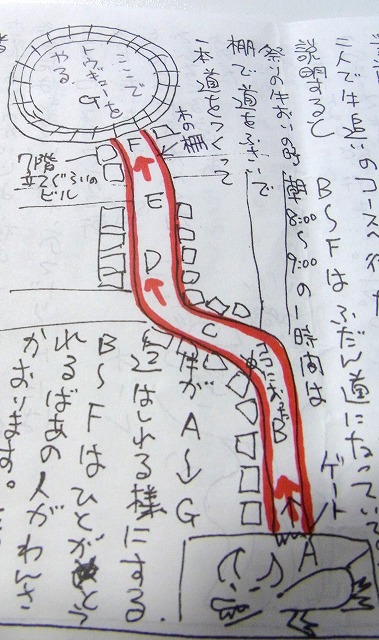 二人で牛追いのコースへ行
説明すると
B〜Fはふだん道になってい
祭の牛おいの時 朝8:00〜9:00の1時間は
棚で道をふさいで
一本道をつくって
木の柵
ここで
トウギューを
やる
G
F
7階
立てぐらいの
ビル
E
D
C
B
ゲート
A
牛がA→G
迄はしれる様にする。
B〜Fはひとがとう
れるばあの人がわんさ
かおります。